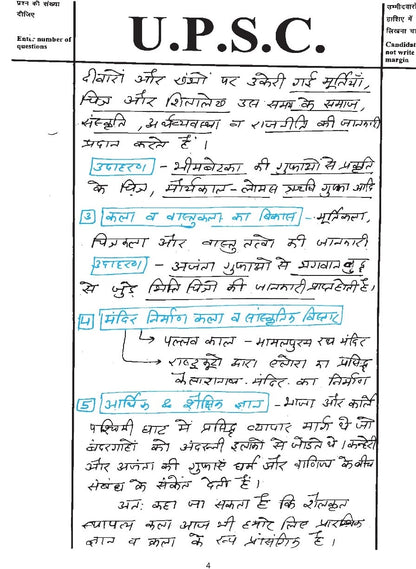 प्रश्न की संख्या
दीजिए
Enter number of
questions
U.P.S.C.
उम्मीदवारों
हाशिए में
लिखना चा
Candidat
not write
margin
दीवारों और खंभों पर उकेरी गई मूर्तियाँ,
चित्र और शिलालेख उस समय के समाज,
संस्कृति, अर्थव्यवस्था व राजनीति की जानकारी
प्रदान करते हैं।
उदाहरण - भीमबेटका की गुफाओं से प्रकृति
के चित्र, मौर्यकाल - लोमस ऋषि गुफा आदि
3 कला व वास्तुकला का विकास - मूर्तिकला,
चित्रकला और वास्तु तत्वो की जानकारी
उदाहरण - अजंता गुफाओं से भगवान बुद्ध
से जुड़े भित्ति चित्रो की जानकारी प्राप्त होती है।
4 मंदिर निर्माण कला व सांस्कृतिक विस्तार
पल्लव काल - मामलपुरम रथ मंदिर
राष्ट्रकूटो द्वारा एलोरा का प्रसिद्ध
कैलाशनाथ मंदिर का निर्माण
5 आर्थिक & शैक्षिक ज्ञान - भाजा और कार्ले
पश्चिमी घाट में प्रसिद्ध व्यापार मार्ग थे जो
बंदरगाहों को अंदरूनी इलाकों से जोडते थे। कन्हेरी
और अजंता की गुफाएं धर्म और वाणिज्य के बीच
संबंध के संकेत देती हैं।
अतः कहा जा सकता है कि शैलकृत
स्थापत्य कला आज भी हमारे लिए प्रारम्भिक
ज्ञान व कला के रूप प्रासंगिक है।
4